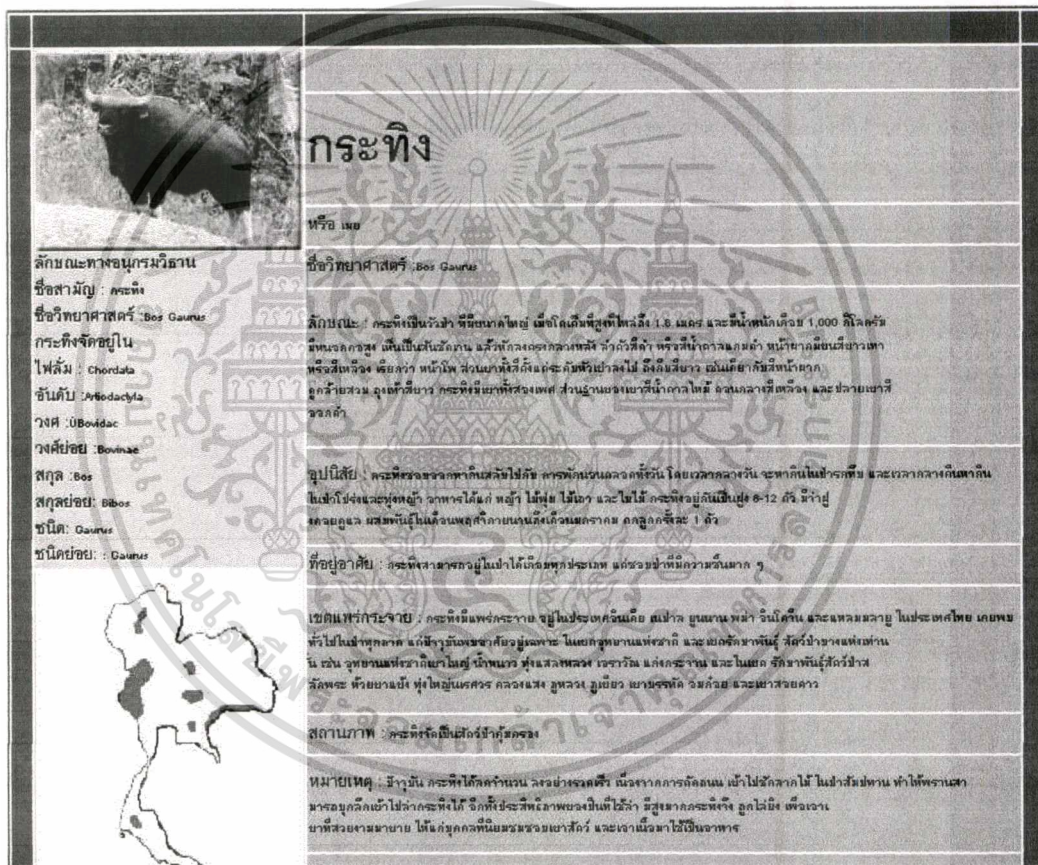 กระทิง
หรือ เมย
ชื่อวิทยาศาสตร์ :Bos Gaurus
ลักษณะทางอนุกรมวิธาน
ชื่อสามัญ : กระทิง
ชื่อวิทยาศาสตร์ :Bos Gaurus
กระทิงจัดอยู่ใน
ไฟลั่ม : Chordata
อันดับ :Artiodactyla
วงศ์ :Bovidac
วงศ์ย่อย :Bovinae
สกุล :Bos
สกุลย่อย: Bibos
ชนิด: Gaurus
ชนิดย่อย: : Gaurus
ลักษณะ : กระทิงเป็นวัวป่า ที่มีขนาดใหญ่ เมื่อโตเต็มที่สูงที่ไหล่ถึง 1.8 เมตร และมีน้ำหนักเกือบ 1,000 กิโลครัม
มีหนอกสูง เห็นเป็นสันชัดเจน แล้วหักลงตรงกลางหลัง ลำตัวสีดำ หรือสีน้ำตาลแกมดำ หน้าผากมีขนสีขาวเทา
หรือสีเหลือง เรียกว่า หน้าโพ ส่วนขาทั้งสี่ตั้งแต่ระดับหัวเข่าลงไป ถึงกีบสีขาว เช่นเดียวกับสีหน้าผาก
ดูคล้ายสวม ถุงเท้าสีขาว กระทิงมีเขาทั้งสองเพศ ส่วนฐานของเขาสีน้ำตาลไหม้ ตอนกลางสีเหลือง และปลายเขาสี
ออกดำ
อุปนิสัย : กระทิงชอบออกหากินสลับไปกับ การพักนอนตลอดทั้งวัน โดยเวลากลางวัน จะหากินในป่ารกทึบ และเวลากลางคืนหากิน
ในป่าโปร่งและทุ่งหญ้า อาหารได้แก่ หญ้า ไม้พุ่ม ไม้เถา และใบไม้ กระทิงอยู่กันเป็นฝูง 8-12 ตัว มีจ่าฝู
งคอยดูแล ผสมพันธุ์ในเดือนพฤศจิกายนจนถึงเดือนมกราคม ตกลูกครั้งละ 1 ตัว
ที่อยู่อาศัย : กระทิงสามารถอยู่ในป่าได้เกือบทุกประเภท แต่ชอบป่าที่มีความชื้นมาก ๆ
เขตแพร่กระจาย : กระทิงมีแพร่กระจาย อยู่ในประเทศอินเดีย เนปาล ยูนนาน พม่า อินโดจีน และแหลมมลายู ในประเทศไทย เคยพบ
ทั่วไปในป่าทุกภาค แต่ปัจจุบันพบอาศัยอยู่เฉพาะ ในเขตอุทยานแห่งชาติ และเขตรักษาพันธุ์ สัตว์ป่าบางแห่งเท่าน
น เช่น อุทยานแห่งชาติเขาใหญ่ น้ำหนาว ทุ่งแสลงหลวง เอราวัณ แก่งกระจาน และในเขต รักษาพันธุ์สัตว์ป่าส
ลักพระ ห้วยขาแข้ง ทุ่งใหญ่นเรศวร คลองแสง ภูหลวง ภูเขียว เขาบรรทัด อมก๋อย และเขาสอยดาว
สถานภาพ : กระทิงจัดเป็นสัตว์ป่าคุ้มครอง
หมายเหตุ : ปัจจุบัน กระทิงได้ลดจำนวน ลงอย่างรวดเร็ว เนื่องจากการตัดถนน เข้าไปชักลากไม้ ในป่าสัมปทาน ทำให้พรานสา
มารถบุกลึกเข้าไปล่ากระทิงได้ อีกทั้งประสิทธิภาพของปืนที่ใช้ล่า มีสูงมากกระทิงจึง ถูกไล่ยิง เพื่อเอาเ
ขาที่สวยงามมาขาย ให้แก่บุคคลที่นิยมชมชอบเขาสัตว์ และเอาเนื้อมาใช้เป็นอาหาร